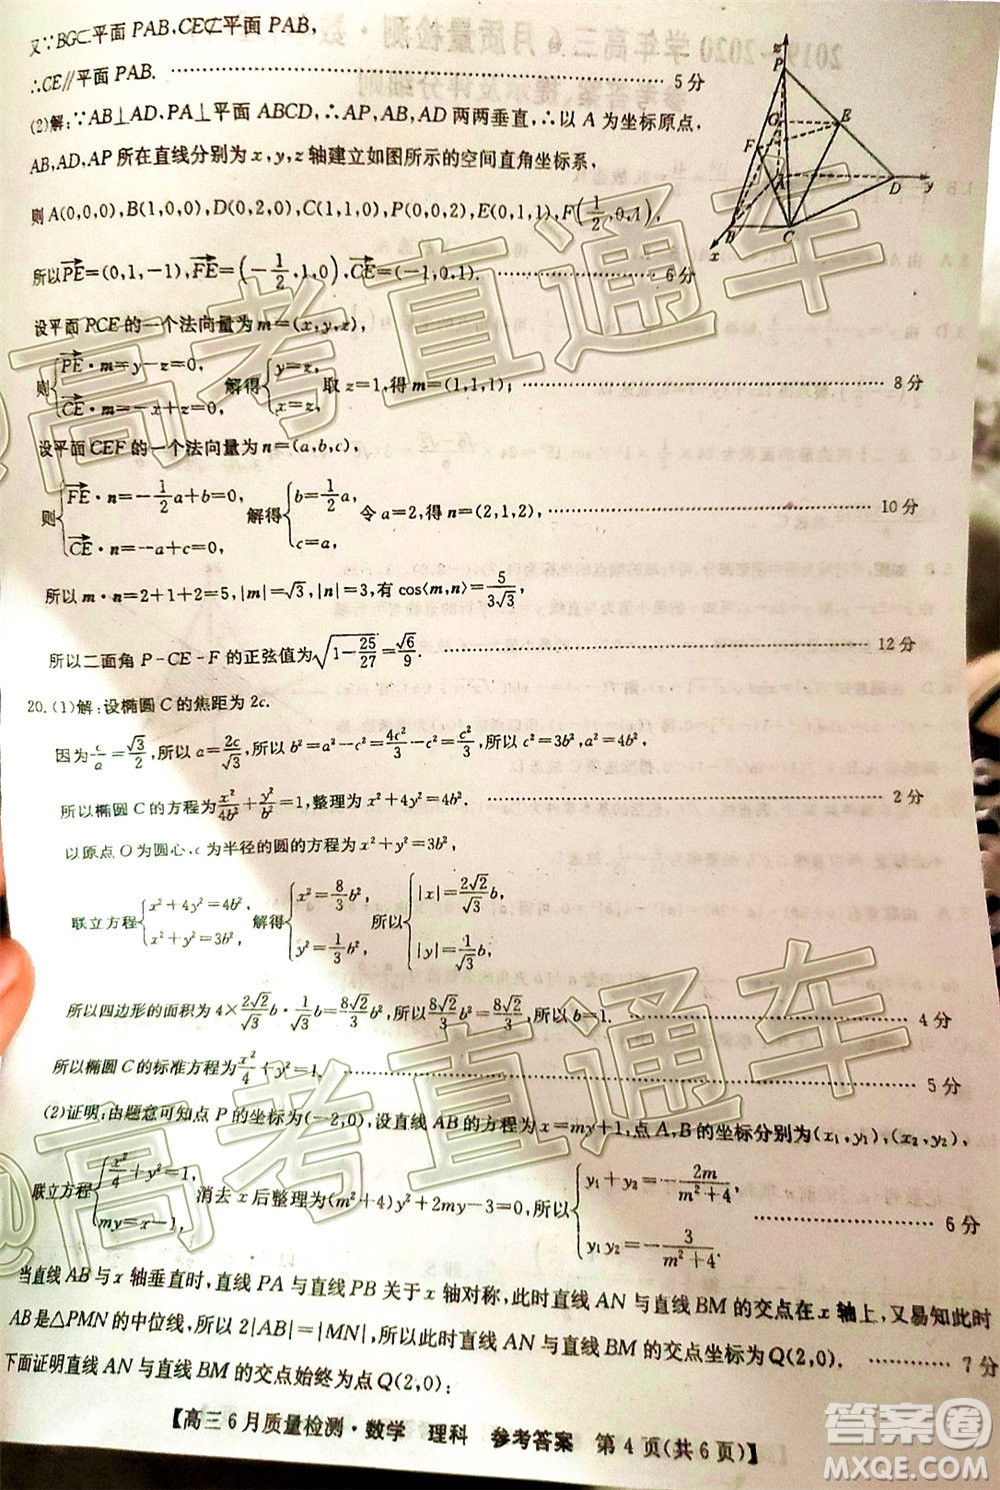 又∵BG⊂平面 PAB,CE⊄平面 PAB,
∴CE∥平面 PAB. 5 分
(2)解:∵AB⊥AD,PA⊥平面 ABCD,∴AB,AP,AD 两两垂直,∴以 A 为坐标原点,
AB,AD,AP 所在直线分别为 x,y,z 轴建立如图所示的空间直角坐标系,
则 A(0,0,0),B(1,0,0),D(0,2,0),C(1,1,0),P(0,0,2),E(0,1,1),F(1/2,0,1),
所以PE=(0,1,-1),FE=(-1/2,1,0),CE=(-1,0,1). 6 分
设平面 PCE 的一个法向量为 m=(x,y,z),
则{PE·m=y-z=0, CE·m=-x+z=0, 解得{y=z, x=z, 取 z=1,得 m=(1,1,1); 8 分
设平面 CEF 的一个法向量为 n=(a,b,c),
则{FE·n=-1/2a+b=0, CE·n=-a+c=0, 解得{b=1/2a, c=a, 令 a=2,得 n=(2,1,2), 10 分
所以 m·n=2+1+2=5,|m|=√3,|n|=3,有 cos⟨m,n⟩=5/(3√3),
所以二面角 P-CE-F 的正弦值为√(1-25/27)=√6/9. 12 分
20.(1)解:设椭圆 C 的焦距为 2c.
因为c/a=√3/2,所以 a=2c/√3,所以 b²=a²-c²=4c²/3-c²=c²/3,所以 c²=3b²,a²=4b²,
所以椭圆 C 的方程为x²/4b²+y²/b²=1,整理为 x²+4y²=4b². 2 分
以原点 O 为圆心,c 为半径的圆的方程为 x²+y²=3b²,
联立方程{x²+4y²=4b², x²+y²=3b², 解得{x²=8/3b², y²=1/3b², 所以{|x|=2√2/√3 b, |y|=1/√3 b,
所以四边形的面积为 4×2√2/√3 b·1/√3 b=8√2/3 b²,所以8√2/3 b²=8√2/3,所以 b=1. 4 分
所以椭圆 C 的标准方程为x²/4+y²=1. 5 分
(2)证明:由题意可知点 P 的坐标为(-2,0),设直线 AB 的方程为 x=my+1,点 A,B 的坐标分别为(x₁,y₁),(x₂,y₂),
联立方程{x²/4+y²=1, my=x-1, 消去 x 后整理为(m²+4)y²+2my-3=0,所以{y₁+y₂=-2m/(m²+4), y₁y₂=-3/(m²+4). 6 分
当直线 AB 与 x 轴垂直时,直线 PA 与直线 PB 关于 x 轴对称,此时直线 AN 与直线 BM 的交点在 x 轴上,又易知此时
AB 是△PMN 的中位线,所以 2|AB|=|MN|,所以此时直线 AN 与直线 BM 的交点坐标为 Q(2,0). 7 分
下面证明直线 AN 与直线 BM 的交点始终为点 Q(2,0):
【高三 6 月质量检测·数学 理科 参考答案 第 4 页(共 6 页)】
z
P
G
E
F
A
D
y
B
C
x
@高考直通车
@高考直通车
答案圈
MXQE.COM